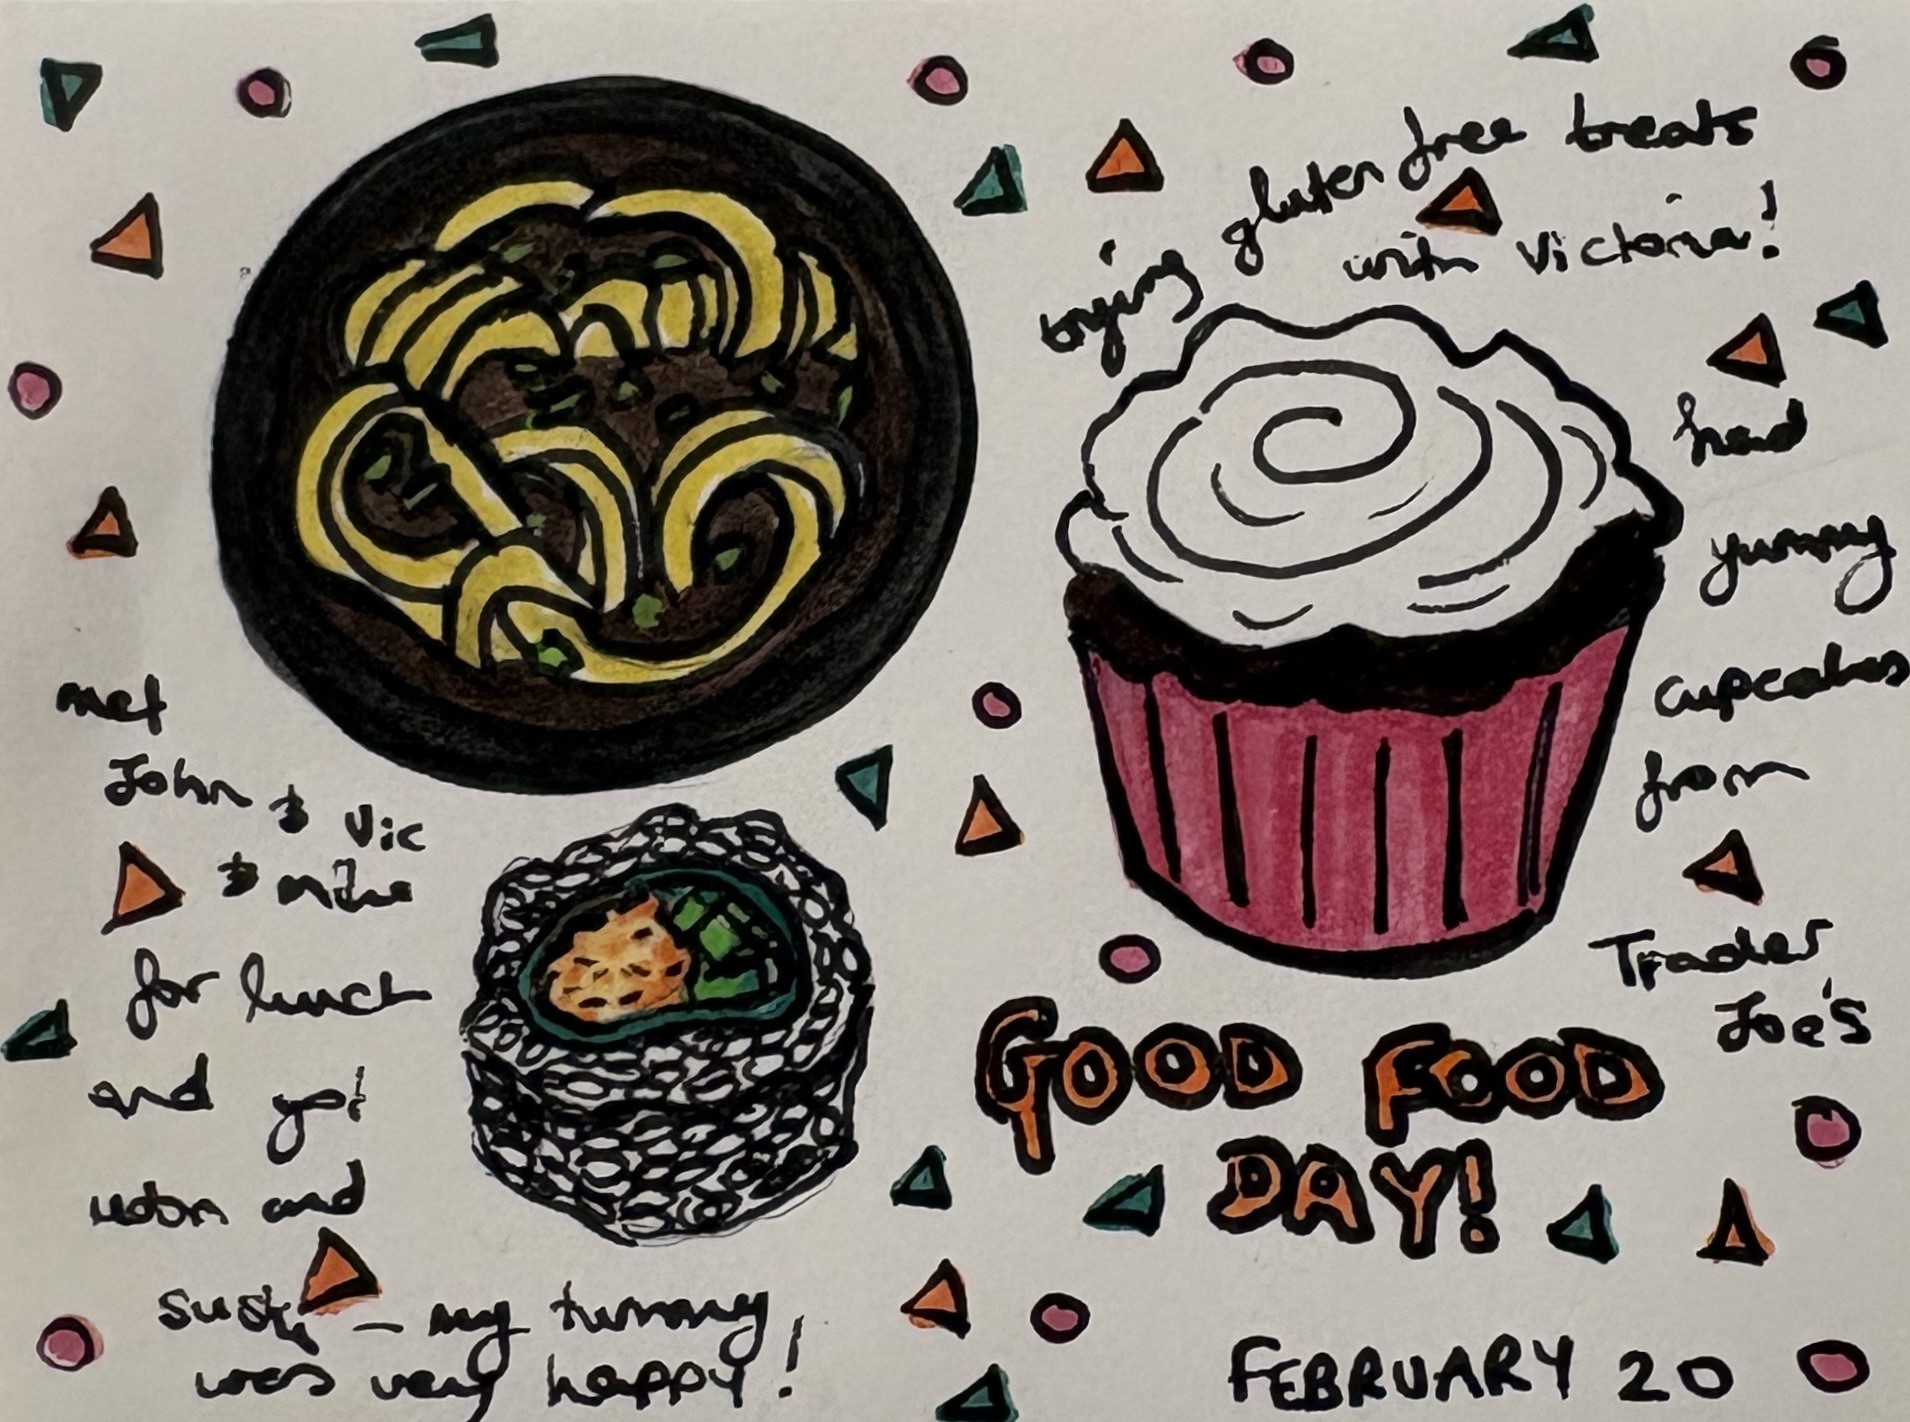 trying gluten free treats
with Victoria!
had
yummy
cupcakes
from
Trader
Joe's
met
John & Vic
& Mike
for lunch
and got
udon and
sushi – my tummy
was very happy!
GOOD FOOD
DAY!
FEBRUARY 20